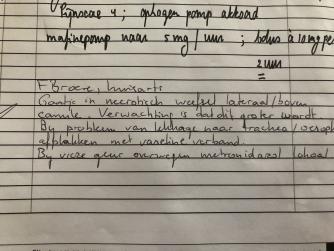 4; ophogen pomp akkoord
morfinepomp naar 5 mg/uur; bolus à 10 mg per
2 uur
F Broere, huisarts
Gaatje in necrotisch weefsel lateraal/boven
canule. Verwachting is dat dit groter wordt
Bij probleem van lekkage naar trachea/oesoph
afplakken met vaseline verband.
Bij vieze geur overwegen metronidazol lokaal